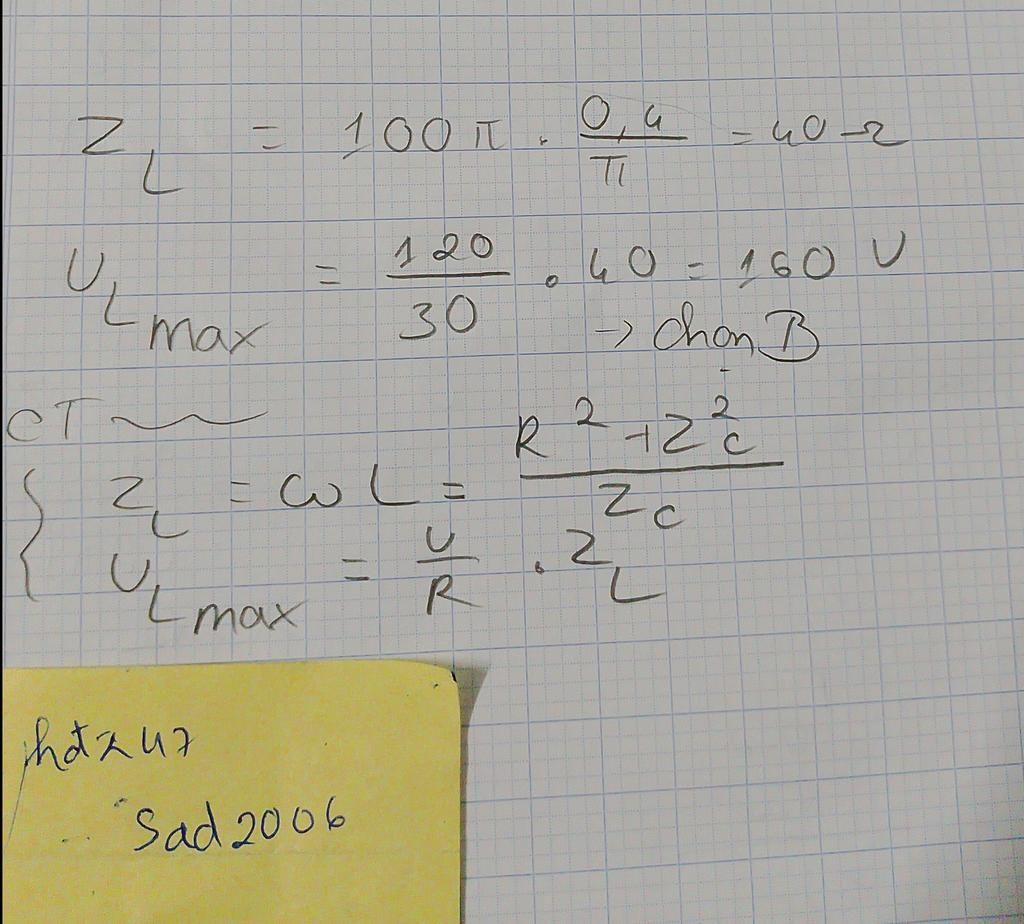 Z_L = 100π . 0,4/π = 40 Ω
U_L max = 120/30 . 40 = 160 V
→ Chọn B
CT
Z_L = ωL = (R² + Z_C²)/Z_C
U_L max = U/R . Z_L
Sad2006